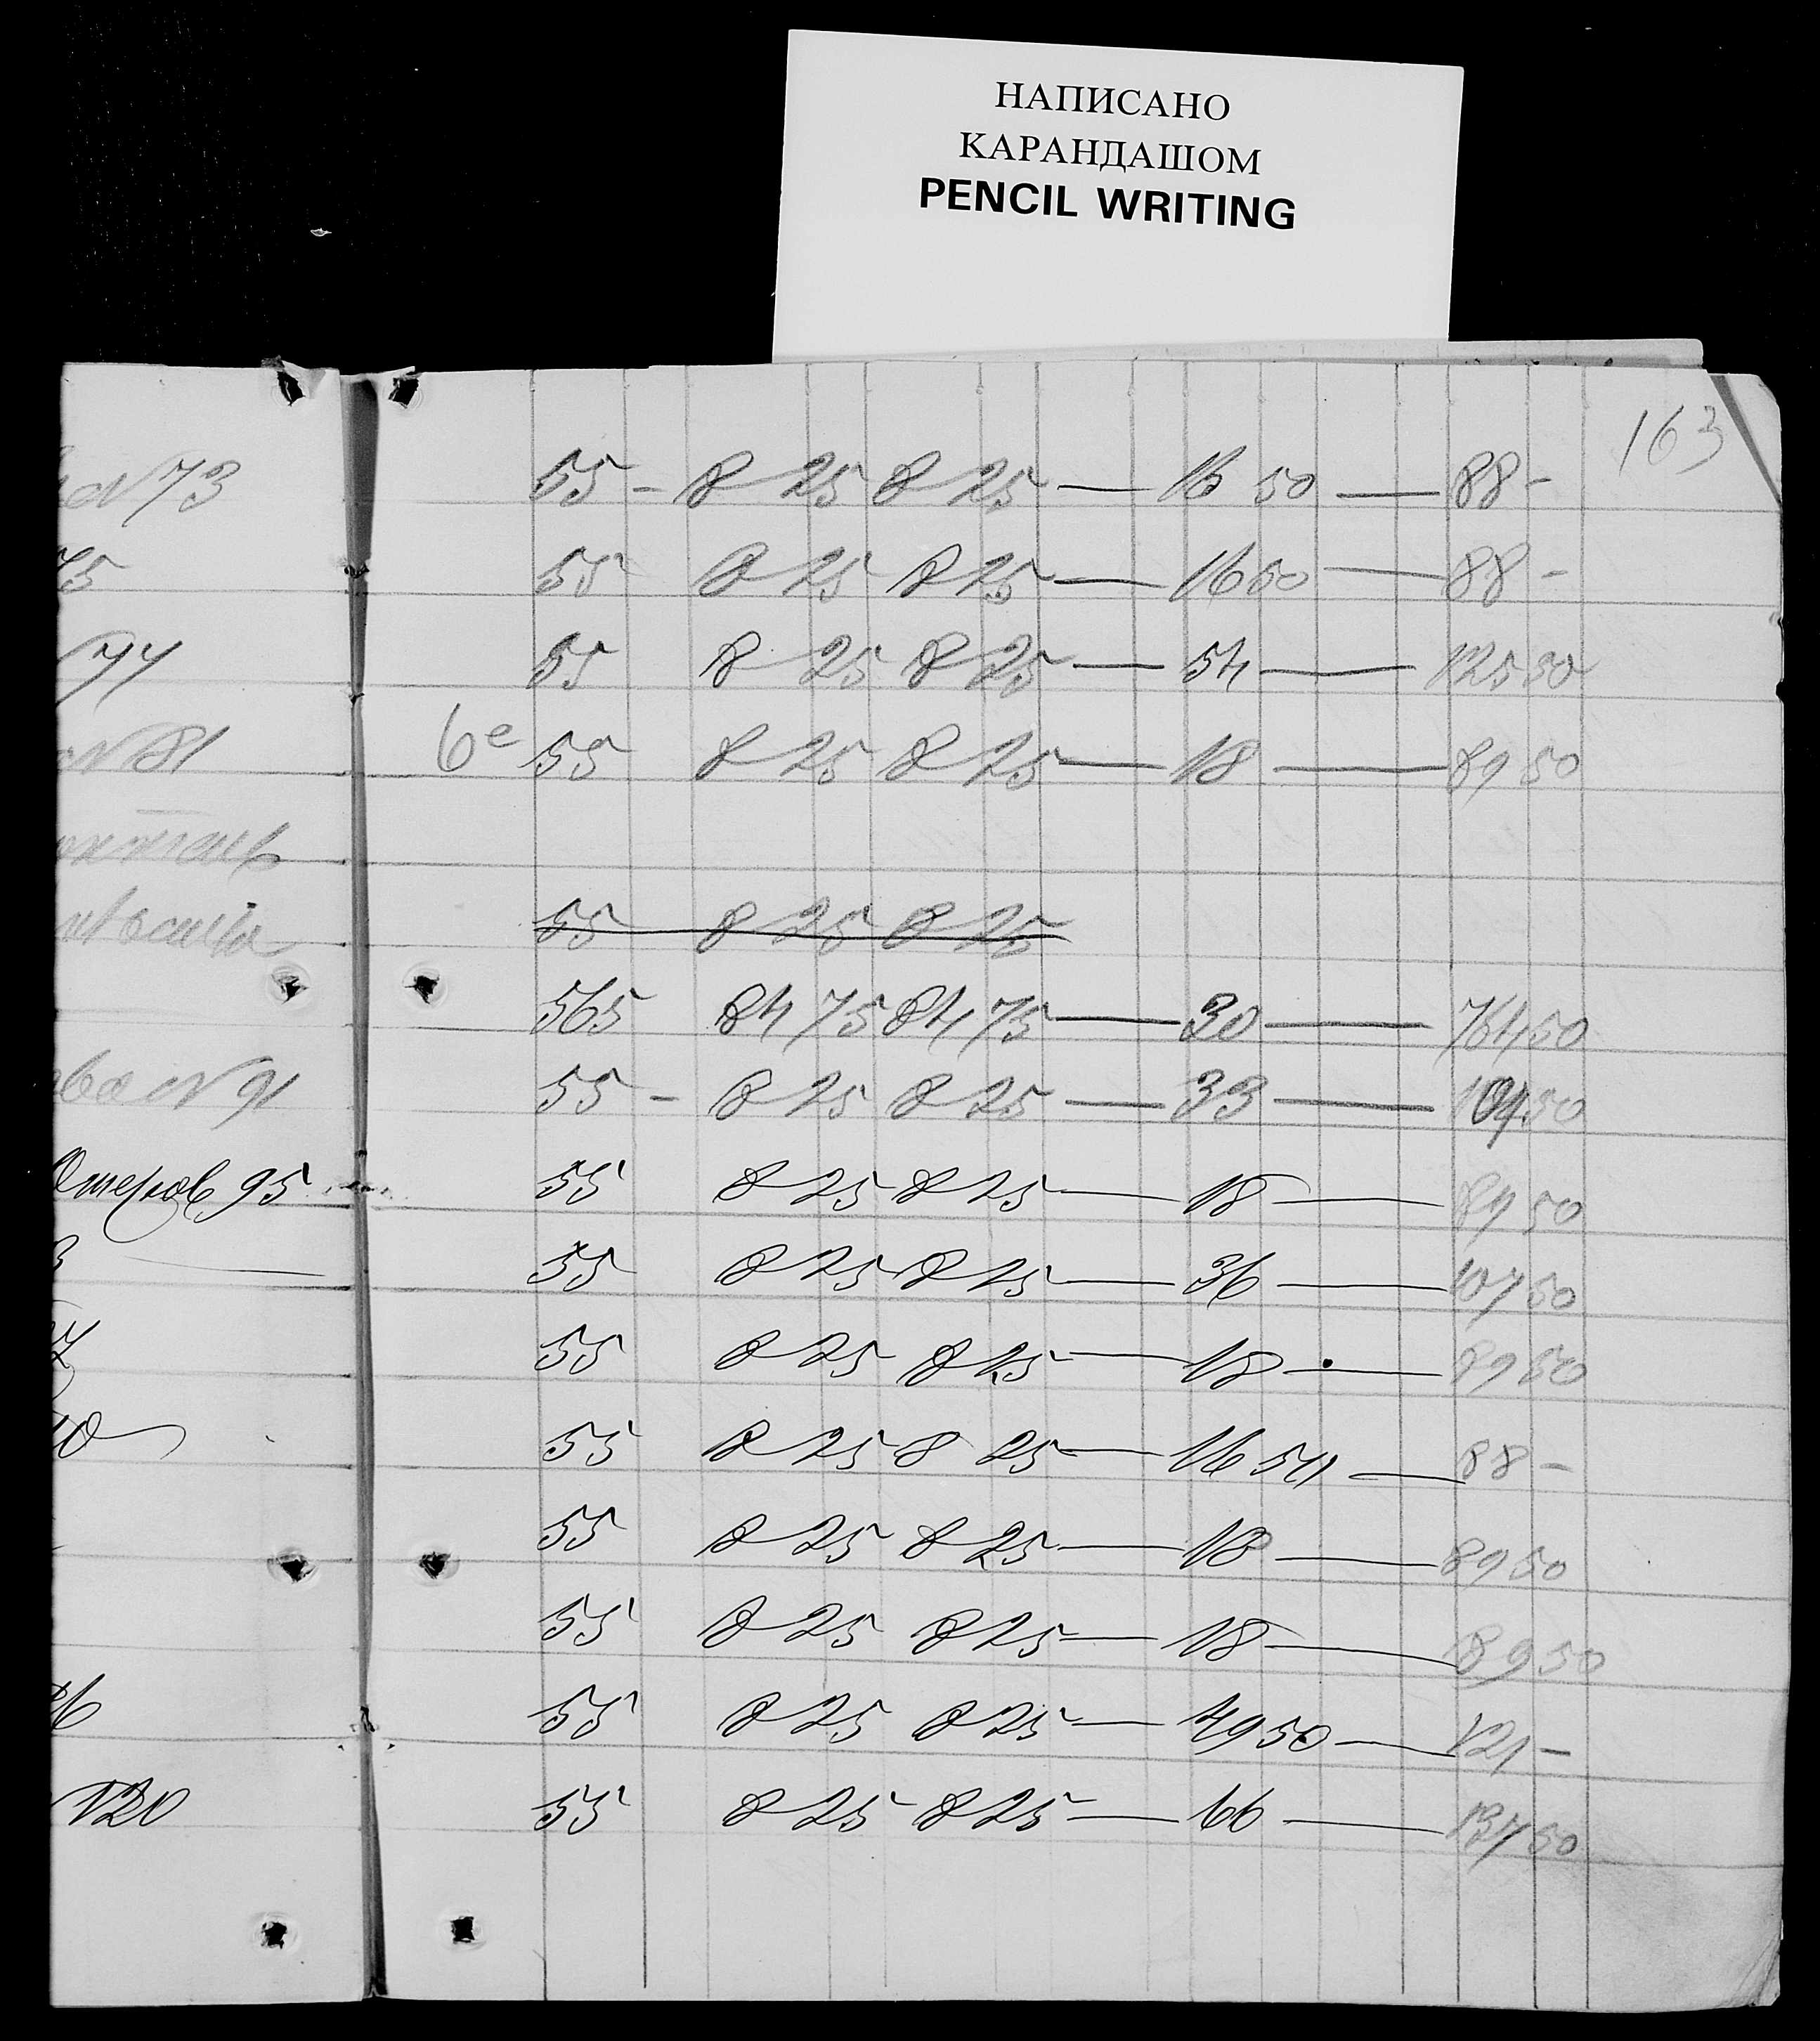 НАПИСАНО
КАРАНДАШОМ
PENCIL WRITING
163
N 73 55 - 8 25 8 25 — 16 50 — 88 -
75 55 8 25 8 25 — 16 50 — 88 -
77 55 8 25 8 25 — 54 — 125 50
N 81 6e 55 8 25 8 25 — 18 — 89 50
55 8 25 8 25
565 84 75 84 75 — 30 — 764 50
N 91 55 - 8 25 8 25 — 33 — 104 50
95 55 8 25 8 25 — 18 — 89 50
3 — 55 8 25 8 25 — 36 — 107 50
7 55 8 25 8 25 — 18 . — 89 50
10 55 8 25 8 25 — 16 50 — 88 -
55 8 25 8 25 — 18 — 89 50
55 8 25 8 25 — 18 — 89 50
26 55 8 25 8 25 — 49 50 — 121 -
120 55 8 25 8 25 — 66 — 137 50